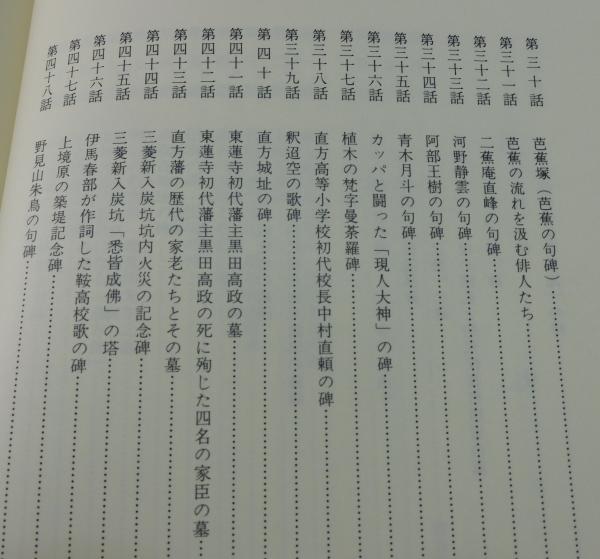 第三十話 芭蕉塚（芭蕉の句碑）
第三十一話 芭蕉の流れを汲む俳人たち
第三十二話 二蕉庵直峰の句碑
第三十三話 河野静雲の句碑
第三十四話 阿部王樹の句碑
第三十五話 青木月斗の句碑
第三十六話 カッパと闘った「現人大神」の碑
第三十七話 植木の梵字曼荼羅碑
第三十八話 直方高等小学校初代校長中村直頼の碑
第三十九話 釈迢空の歌碑
第四十話 直方城址の碑
第四十一話 東蓮寺初代藩主黒田高政の墓
第四十二話 東蓮寺初代藩主黒田高政の死に殉じた四名の家臣の墓
第四十三話 直方藩の歴代の家老たちとその墓
第四十四話 三菱新入炭坑坑内火災の記念碑
第四十五話 三菱新入炭坑「悉皆成佛」の塔
第四十六話 伊馬春部が作詞した鞍高校歌の碑
第四十七話 上境原の築堤記念碑
第四十八話 野見山朱鳥の句碑